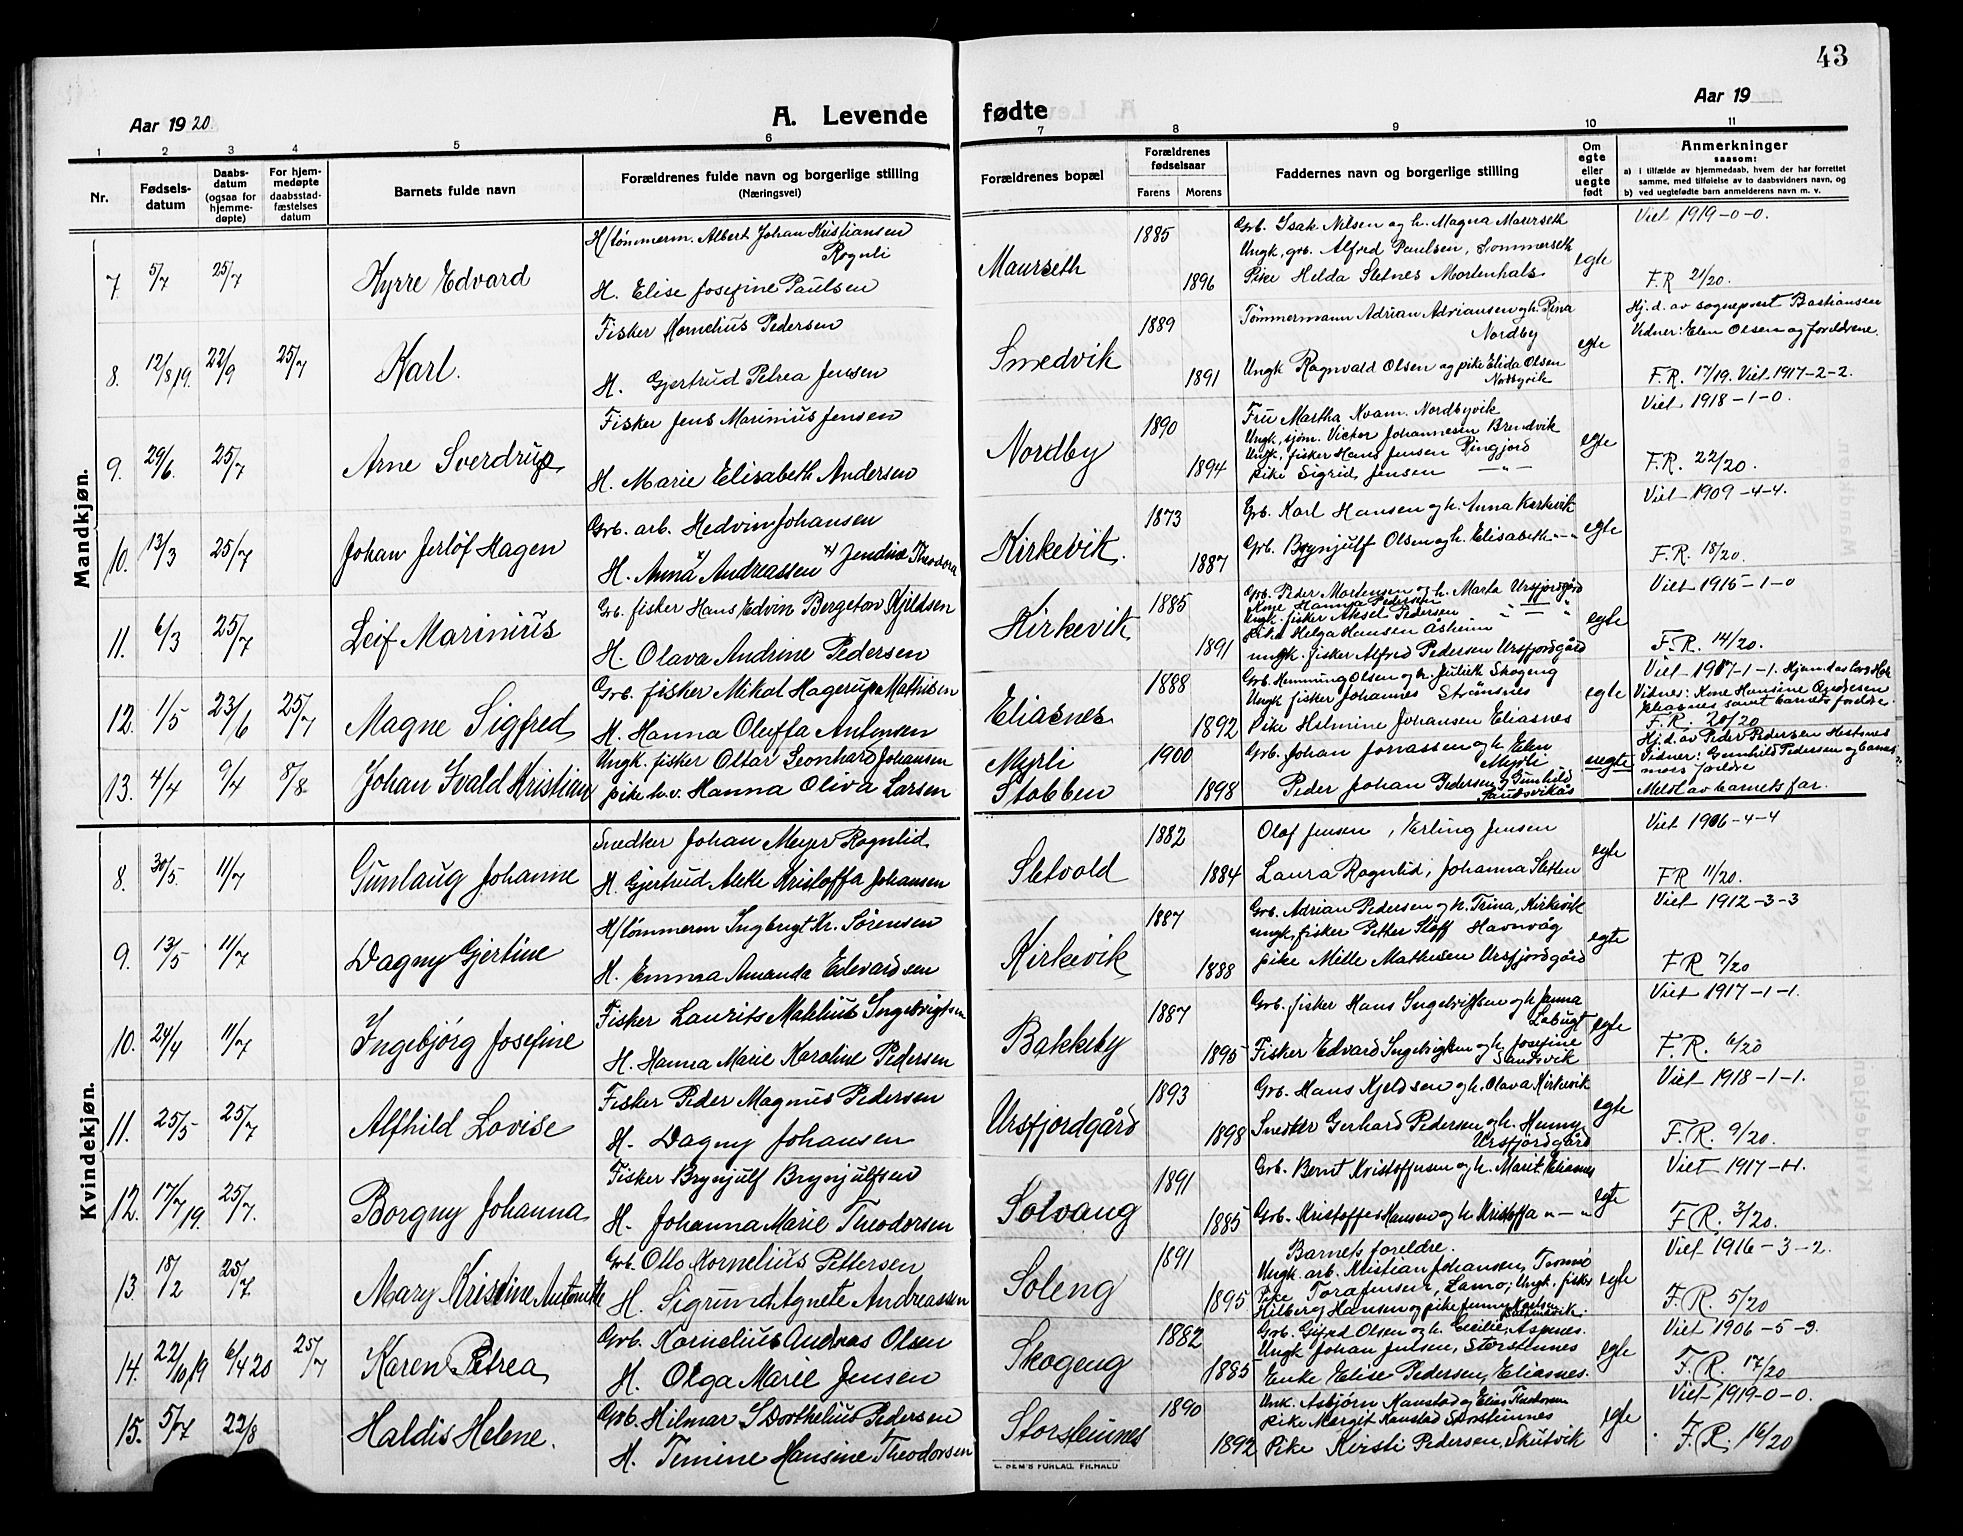 43
Aar 1920.
A. Levende
fødte
Aar 19
1 2 3 4 5 6 7 8 9 10 11
Nr.
Fødsels-
datum
Daabs-
datum
(ogsaa for
hjemme-
døpte)
For hjem-
medøpte
daabsstad-
fæstelses
datum
Barnets fulde navn
Forældrenes fulde navn og borgerlige stilling
(Næringsvei)
Forældrenes bopæl
Forældrenes
fødselsaar
Farens Morens
Faddernes navn og borgerlige stilling
Om
egte
eller
uegte
født
Anmerkninger
saasom:
a) i tilfælde av hjemmedaab, hvem der har forrettet
samme, med tilføielse av to daabsvidners navn, og
b) ved uegtefødte barn anmelderens navn m. v.
Mandkjøn.
7. 5/7 25/7 Kyrre Edvard
H/tømmerm. Albert Johan Kristiansen
Rognli
H. Elise Josefine Paulsen
Maurseth 1885 1896
Grb. Isak Nilsen og h. Magna Maurseth
Ungk. grb. Alfred Paulsen, Sommerseth
Pike Helda Sletnes Mortenhals
egte
Viet 1919-0-0.
F.R 21/20.
8. 12/8 19. 22/9 25/7 Karl.
Fisker Kornelius Pedersen
H. Gjertrud Petrea Jensen
Smedvik 1889 1891
Tømmermann Adrian Adriansen og h. Rina
Nordby
Ungk Ragnvald Olsen og pike Elida Olsen
Nordbyvik
egte
Hj.d. av sogneprest Bastiansen
Vidner: Elen Olsen og foreldrene.
F.R. 17/19. Viet 1917-2-2.
9. 29/6. 25/7 Arne Sverdrup
Fisker Jens Marinius Jensen
H. Marie Elisabeth Andersen
Nordby 1890 1894
Fru Martha Kvam. Nordbyvik
Ungk. sjøm. Victor Johannesen Brendvik
Ungk. fisker Hans Jensen Ringjord
pike Sigrid Jensen —"—
egte
Viet 1918-1-0.
F.R. 22/20.
10. 13/3 25/7 Johan Jerlöf Hagen
Grb. arb. Hedvin Johansen
H. Anna Andreassen Jendine Theodora
Kirkevik. 1873 1887
Grb. Karl Hansen og h. Anna Kirkevik
Grb. Brynjulf Olsen og h. Elisabeth "—"
egte
Viet 1909-4-4.
F.R. 18/20.
11. 6/3 25/7 Leif Marinius
Grb. fisker Hans Edvin Bergeton Kjeldsen
H. Olava Andrine Pedersen
Kirkevik 1885 1891
Grb. Peder Mortensen og h. Marta Ursfjordgård
Kone Hanna Pedersen " — "
Ungk. fisker Aksel Pedersen " "
pike Helga Hansen Åsheim
ungk. fisker Alfred Pedersen Ursfjordgård
egte
Viet 1915-1-0
F.R. 14/20.
12. 1/5 23/6 25/7 Magne Sigfred
Grb. fisker Nikal Hagerup Mathisen
H. Hanna Oluffa Antonsen
Eliasnes 1888 1892
Grb. Henning Olsen og h. Julieth Skogeng
Ungk fisker Johannes Strömsnes
Pike Helmine Johansen Eliasnes
egte
Viet 1917-1-1.
Vidnes: Kone Hansine Andresen
Eliasnes samt barnets foreldre.
F.R. 20/20
13. 4/4 9/4 8/8 Johan Ivald Kristian
Ungk. fisker Oltar Leonhard Johansen
pike h.v. Hanna Oliva Larsen
Myrli
Stobben 1900 1898
Grb. Johan Jonassen og h. Elen
Myrli
Peder Johan Pedersen og Gunhild
Sandsvikås
uegte
Hj.d. av Peder Pedersen Hestenes
Vidner: Gunhild Pedersen og barnets
mors foreldre
Meldt av barnets far.
Kvindekjøn.
8. 30/5. 11/7 Gunlaug Johanne
Snedker Johan Meyer Rognlid
H. Gjertrud Alette Kristoffa Johansen
Sletvold 1882 1884
Olaf Jensen, Erling Jensen
Laura Rognlid, Johanna Sletten
egte
Viet 1906-4-4
FR 11/20.
9. 13/5 11/7 Dagny Gjertine
H/tømmerm Ingbrigt Kr. Sørensen
H. Emma Amanda Edvardsen
Kirkevik 1887 1888
Grb. Adrian Pedersen og h. Trina, Kirkevik
ungk, fisker Petter Stoff Havnvåg
pike Mille Mathisen Ursfjordgård
egte
Viet 1912-3-3
FR 7/20
10. 24/4 11/7 Ingebjörg Josefine
Fisker Laurits Mathius Ingebrigtsen
H. Hanna Marie Karoline Pedersen
Bakkeby 1887 1895
Grb. fisker Hans Ingebrigtsen og h. Janna
Labugt
Fisker Edvard Ingebrigtsen og h. Josefine
Sandsvik
egte
Viet 1917-1-1.
F.R. 6/20
11. 25/5 25/7 Alfhild Lovise
Fisker Peder Magnus Pedersen
H. Dagny Johansen
Ursfjordgård 1893 1898
Grb. Hans Kjeldsen og h. Olava Kirkevik
Snedker Gerhard Pedersen og h. Henny
Ursfjordgård
egte
Viet 1918-1-1.
F.R. 9/20.
12. 17/7 19. 25/7. Borgny Johanna
Fisker Brynjulf Brynjulfsen
H. Johanna Marie Theodorsen
Solvang 1891 1885
Grb. Bernt Kristoffersen og h. Marit Eliasnes
Grb. Kristoffer Hansen og h. Kristoffa "—"
egte
Viet 1917-1-1.
F.R. 3/20.
13. 18/2 25/7. Mary Kristine Antonette
Grb. Otto Kornelius Pettersen
H. Sigrund Agnete Andreassen
Soleng 1891 1895
Barnets foreldre.
Ungk. arb. Kristian Johansen, Tromsö
Pike Tora Jensen, Lamo; Ungk. fisker
Hilberg Hansen og pike Jenny Karlsen
egte
Viet 1916-3-2.
F.R. 5/20
14. 22/10, 19 6/4 20 25/7 Karen Petrea
Grb. Kornelius Andreas Olsen
H. Olga Marie Jensen
Skogeng 1882 1885
Grb. Gifred Olsen og h. Cecilie, Aspenes.
Ungk Johan Jensen, Storsteinnes
Enke Elise Pedersen, Eliasnes.
egte
Viet 1906-5-3.
F.R. 17/20
15. 5/7 22/8 Haldis Helene.
Grb. Hilmar I Dorthelius Pedersen
H. Temine Hansine Theodorsen
Storsteinnes 1890 1892
Unk. Asbjörn Kanstad og Elias Theodorsen
pike Margit Kanstad Storsteinnes
Pike Kirsti Pedersen, Skutvik
egte
Viet 1919-0-0.
F.R. 16/20
E. SEM'S FORLAG. FR.HALD